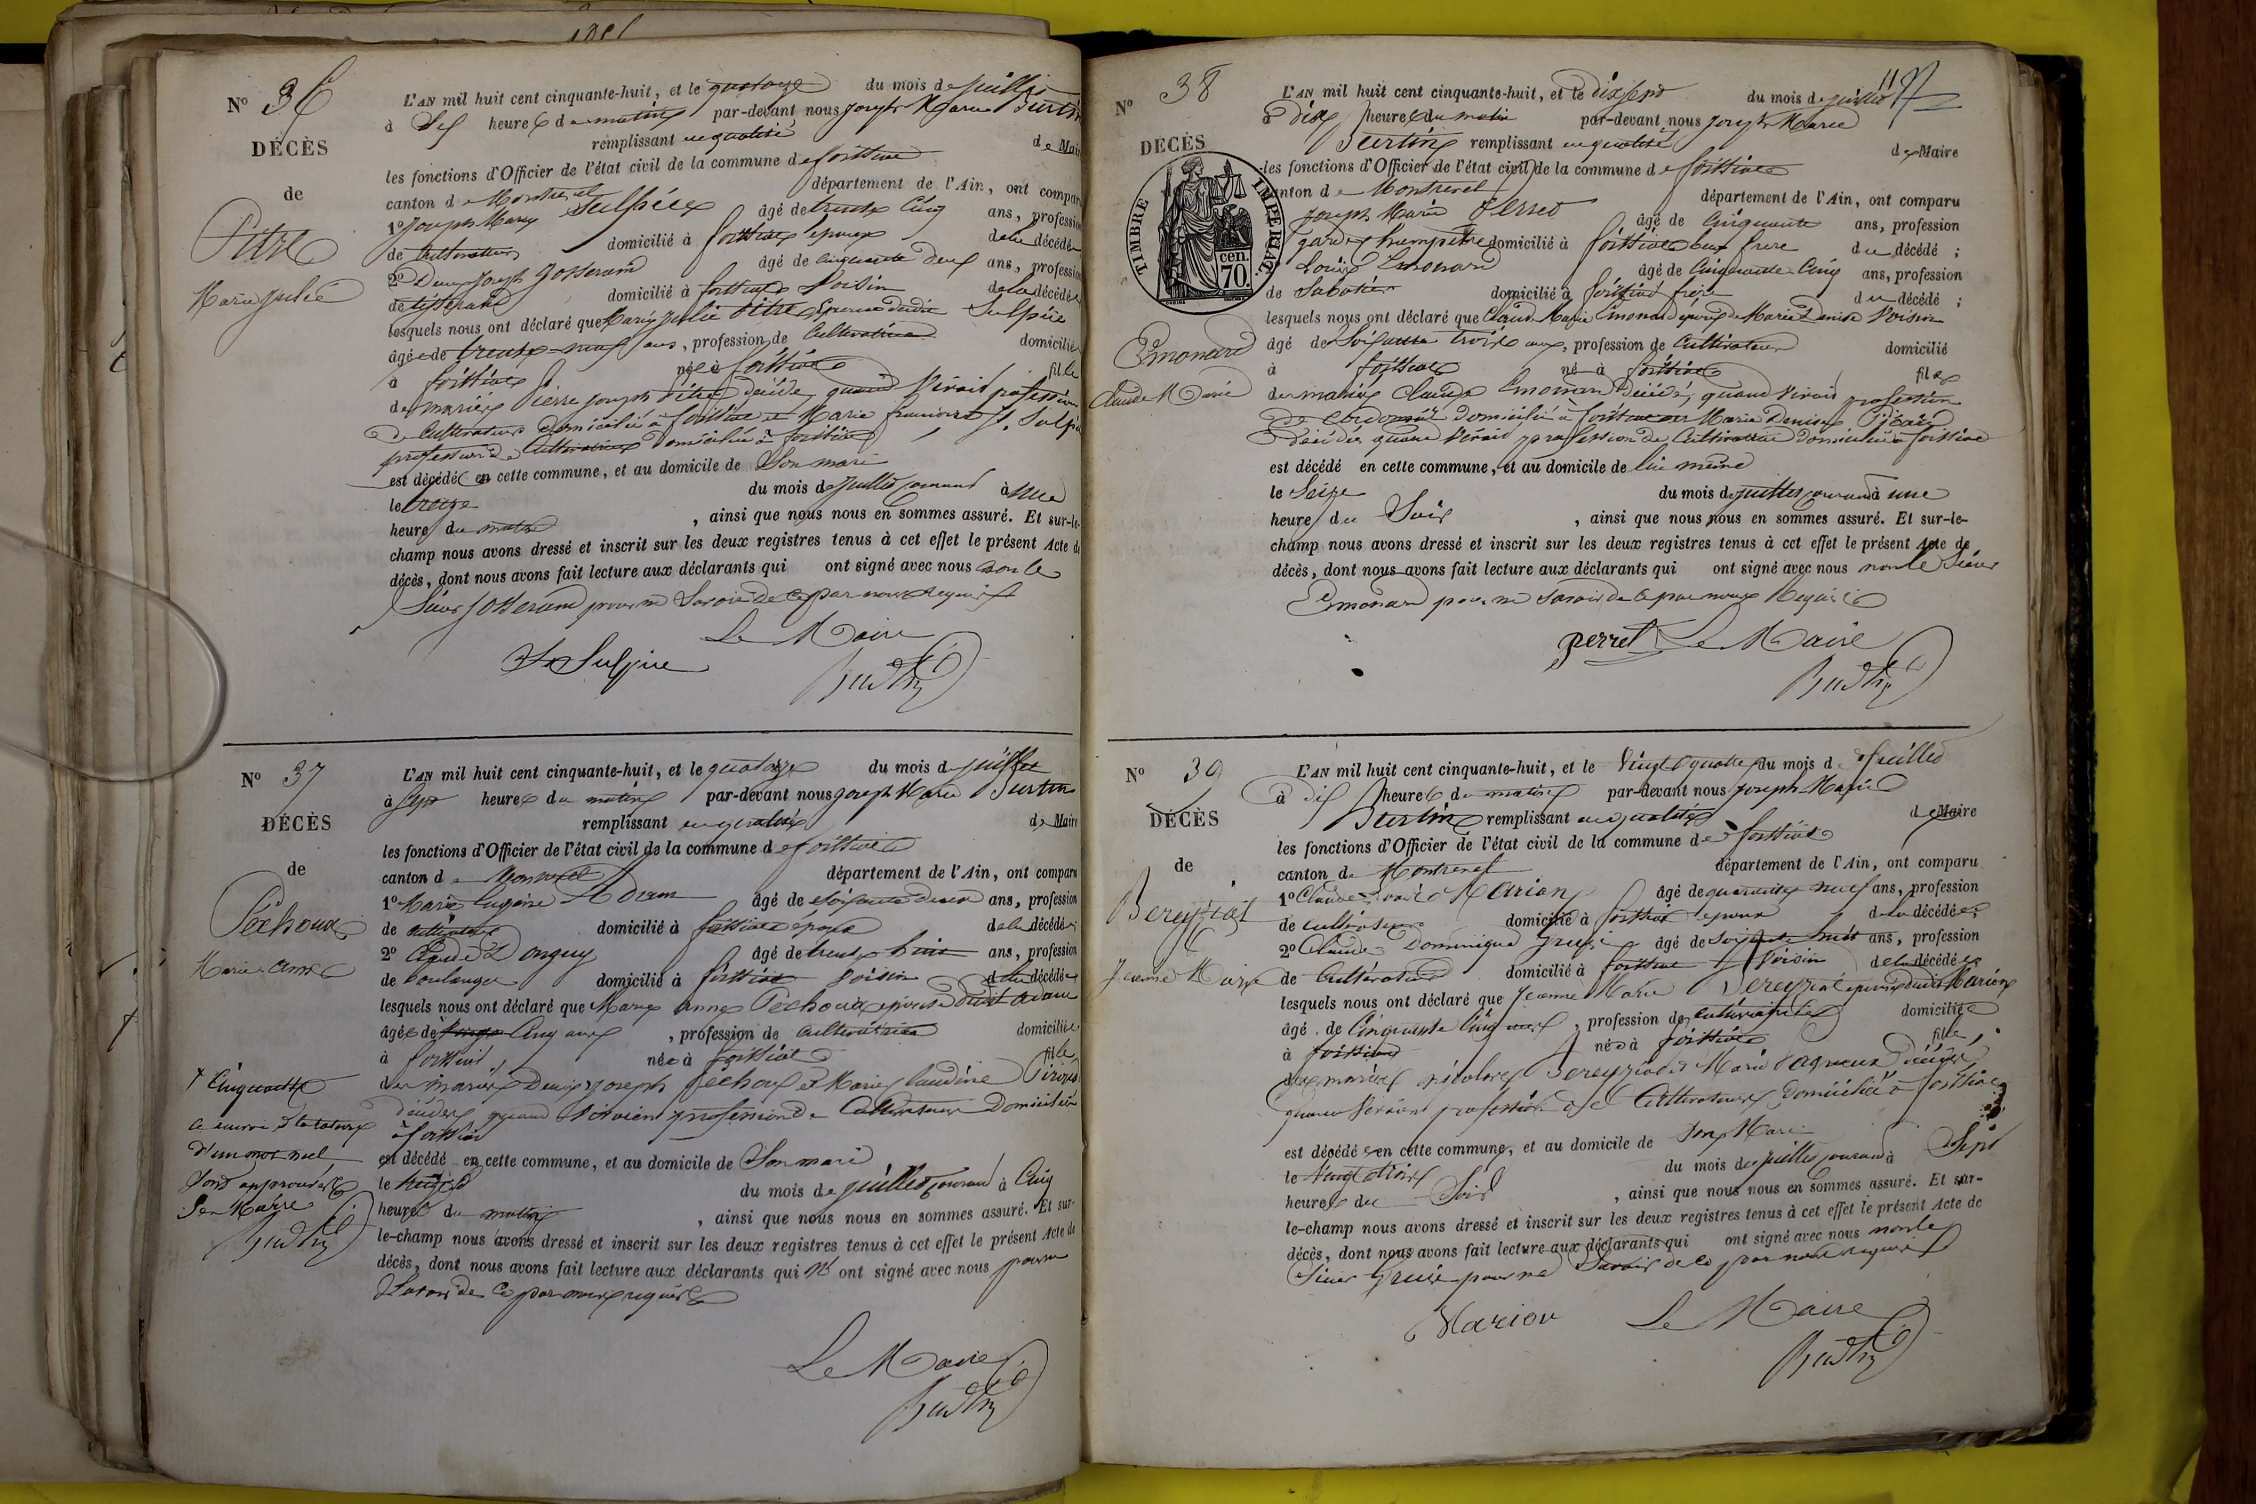 N° 36
DÉCÈS
de
Pitre
Marie Julie
L'AN mil huit cent cinquante-huit, et le quatorze du mois de juillet
à six heures du matin par-devant nous Joseph Marie Burtin
remplissant en qualité de Maire
les fonctions d'Officier de l'état civil de la commune de foissiat
canton de Montrevel département de l'Ain, ont comparu
1° Joseph Marie Sulpice âgé de trente cinq ans, profession
de cultivateur domicilié à foissiat époux de la décédée
2° Denis Joseph Josserand âgé de cinquante deux ans, profession
de tisserand domicilié à foissiat voisin de la décédée
lesquels nous ont déclaré que Marie Julie Pitre Epouse dudit Sulpice
âgée de trente neuf ans, profession de cultivatrice domiciliée
à foissiat née à foissiat fille
des mariés Pierre Joseph Pitre décédé, quand vivait profession
de cultivateur domicilié à foissiat et Marie françoise St. Sulpice
profession de cultivatrice domiciliée à foissiat
est décédée en cette commune, et au domicile de son mari
le treize du mois de juillet courant à une
heure du matin, ainsi que nous nous en sommes assuré. Et sur-le-
champ nous avons dressé et inscrit sur les deux registres tenus à cet effet le présent Acte de
décès, dont nous avons fait lecture aux déclarants qui ont signé avec nous non le
Sieur Josserand pour ne savoir de ce par nous requis
Le Maire
Sulpice Burtin
N° 37
DÉCÈS
de
Péchoux
Marie anne
L'AN mil huit cent cinquante-huit, et le quatorze du mois de juillet
à sept heures du matin par-devant nous Joseph Marie Burtin
remplissant en qualité de Maire
les fonctions d'Officier de l'état civil de la commune de foissiat
canton de Montrevel département de l'Ain, ont comparu
1° Marie Eugène Adam âgé de soixante deux ans, profession
de cultivateur domicilié à foissiat époux de la décédée
2° Donguy âgé de trente huit ans, profession
de boulanger domicilié à foissiat voisin de la décédée
lesquels nous ont déclaré que Marie anne Péchoux épouse dudit adam
âgée de cinq ans, profession de cultivatrice domiciliée
à foissiat, née à foissiat fille
des mariés Denis Joseph Péchoux et Marie Claudine
décédés quand vivaient profession de cultivateurs domiciliés
à foissiat
est décédé en cette commune, et au domicile de son mari
le du mois de juillet courant à cinq
heures du matin, ainsi que nous nous en sommes assuré. Et sur-
le-champ nous avons dressé et inscrit sur les deux registres tenus à cet effet le présent Acte de
décès, dont nous avons fait lecture aux déclarants qui n'ont signé avec nous pour ne
savoir de ce par nous requis
+ Cinquante
ce renvoi
d'un mot nul
sont approuvés
Le Maire
Burtin
Le Maire
Burtin
117
N° 38
DÉCÈS
TIMBRE IMPERIAL
70 cen.
Emonard
Claude Marie
L'AN mil huit cent cinquante-huit, et le dix sept du mois de juillet
à dix heures du matin par-devant nous Joseph Marie
Burtin remplissant en qualité de Maire
les fonctions d'Officier de l'état civil de la commune de foissiat
canton de Montrevel département de l'Ain, ont comparu
Joseph Marie Perret âgé de cinquante ans, profession
garde champêtre domicilié à foissiat beau frère du décédé ;
Louis Emonard âgé de cinquante cinq ans, profession
de sabotier domicilié à foissiat frère du décédé ;
lesquels nous ont déclaré que Claude Marie Emonard époux de Marie Denise Voisin
âgé de soixante trois ans, profession de cultivateur domicilié
à foissiat né à foissiat fils
des mariés Claude Emonard décédé, quand vivait profession
de cordonnier domicilié à foissiat et Marie Denise
décédée quand vivait profession de cultivatrice domiciliée à foissiat
est décédé en cette commune, et au domicile de lui même
le seize du mois de juillet courant à une
heure du soir, ainsi que nous nous en sommes assuré. Et sur-le-
champ nous avons dressé et inscrit sur les deux registres tenus à cet effet le présent Acte de
décès, dont nous avons fait lecture aux déclarants qui ont signé avec nous non le Sieur
Emonard pour ne savoir de ce par nous requis
perret Le Maire
Burtin
N° 39
DÉCÈS
de
Bereyziat
Jeanne Marie
L'AN mil huit cent cinquante-huit, et le vingt quatre du mois de juillet
à dix heures du matin par-devant nous Joseph Marie
Burtin remplissant en qualité de Maire
les fonctions d'Officier de l'état civil de la commune de foissiat
canton de Montrevel département de l'Ain, ont comparu
1° Claude Marion âgé de quarante neuf ans, profession
de cultivateur domicilié à foissiat époux de la décédée
2° Claude Dominique âgé de soixante huit ans, profession
de cultivateur domicilié à foissiat voisin de la décédée
lesquels nous ont déclaré que Jeanne Marie Bereyziat épouse dudit Marion
âgé de cinquante cinq ans, profession de cultivatrice domiciliée
à foissiat née à foissiat fille
des mariés Bereyziat et Marie décédés
quand vivaient profession de cultivateurs domiciliés à foissiat
est décédée en cette commune, et au domicile de son Mari
le vingt trois du mois de juillet courant à sept
heures du soir, ainsi que nous nous en sommes assuré. Et sur-
le-champ nous avons dressé et inscrit sur les deux registres tenus à cet effet le présent Acte de
décès, dont nous avons fait lecture aux déclarants qui ont signé avec nous non le
Sieur pour ne savoir de ce par nous requis
Marion Le Maire
Burtin